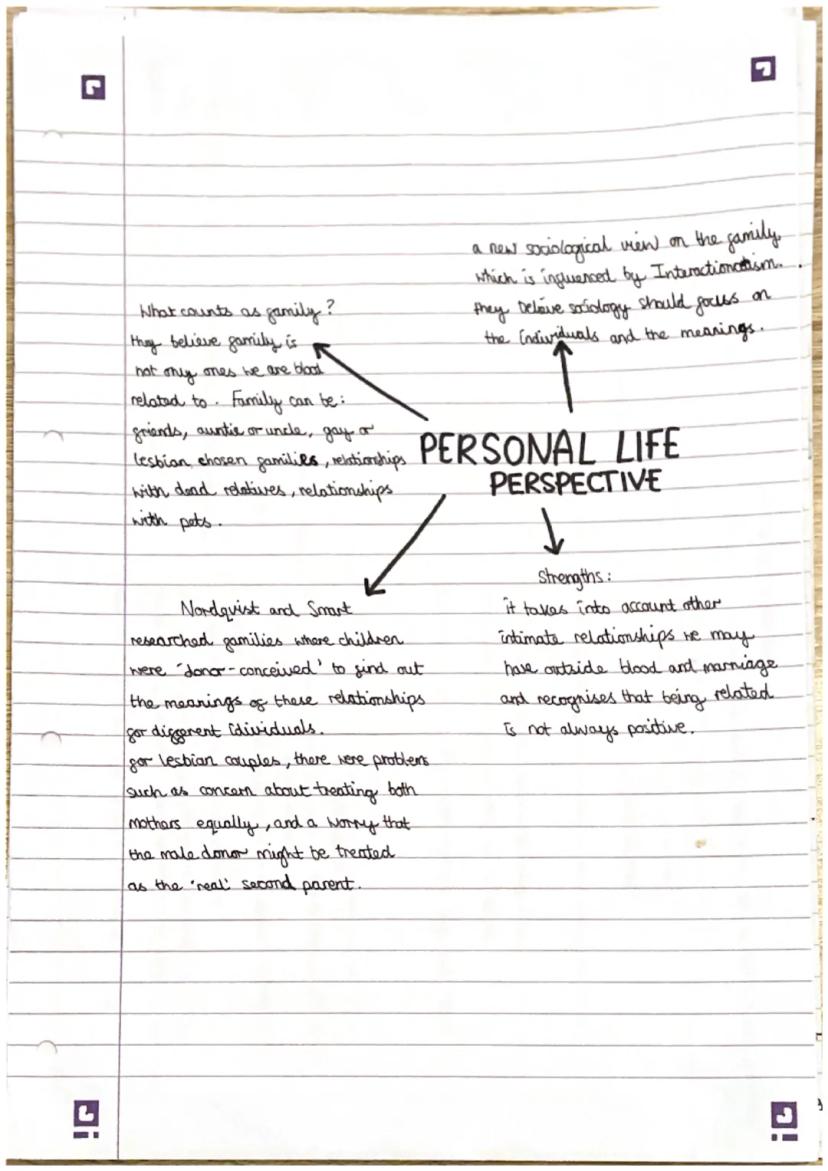 a new sociological view on the family,
which is influenced by Interactionism.
they beleive sociology should focuss on
the individuals and the meanings.
What counts as family?
they believe family is
not only ones we are blood
related to. Family can be:
friends, auntie or uncle, gay or
lesbian chosen families, relationships
with dead relatives, relationships
with pets.
PERSONAL LIFE
PERSPECTIVE
Nordqvist and Smart
researched families where children
were 'donor-conceived' to find out
the meanings of these relationships
for different idividuals.
for lesbian couples, there were problems
such as concern about treating both
mothers equally, and a worry that
the male donor might be treated
as the 'real' second parent.
Strengths:
it takes into account other
intimate relationships we may
have outside blood and marriage
and recognises that being related
is not always positive.